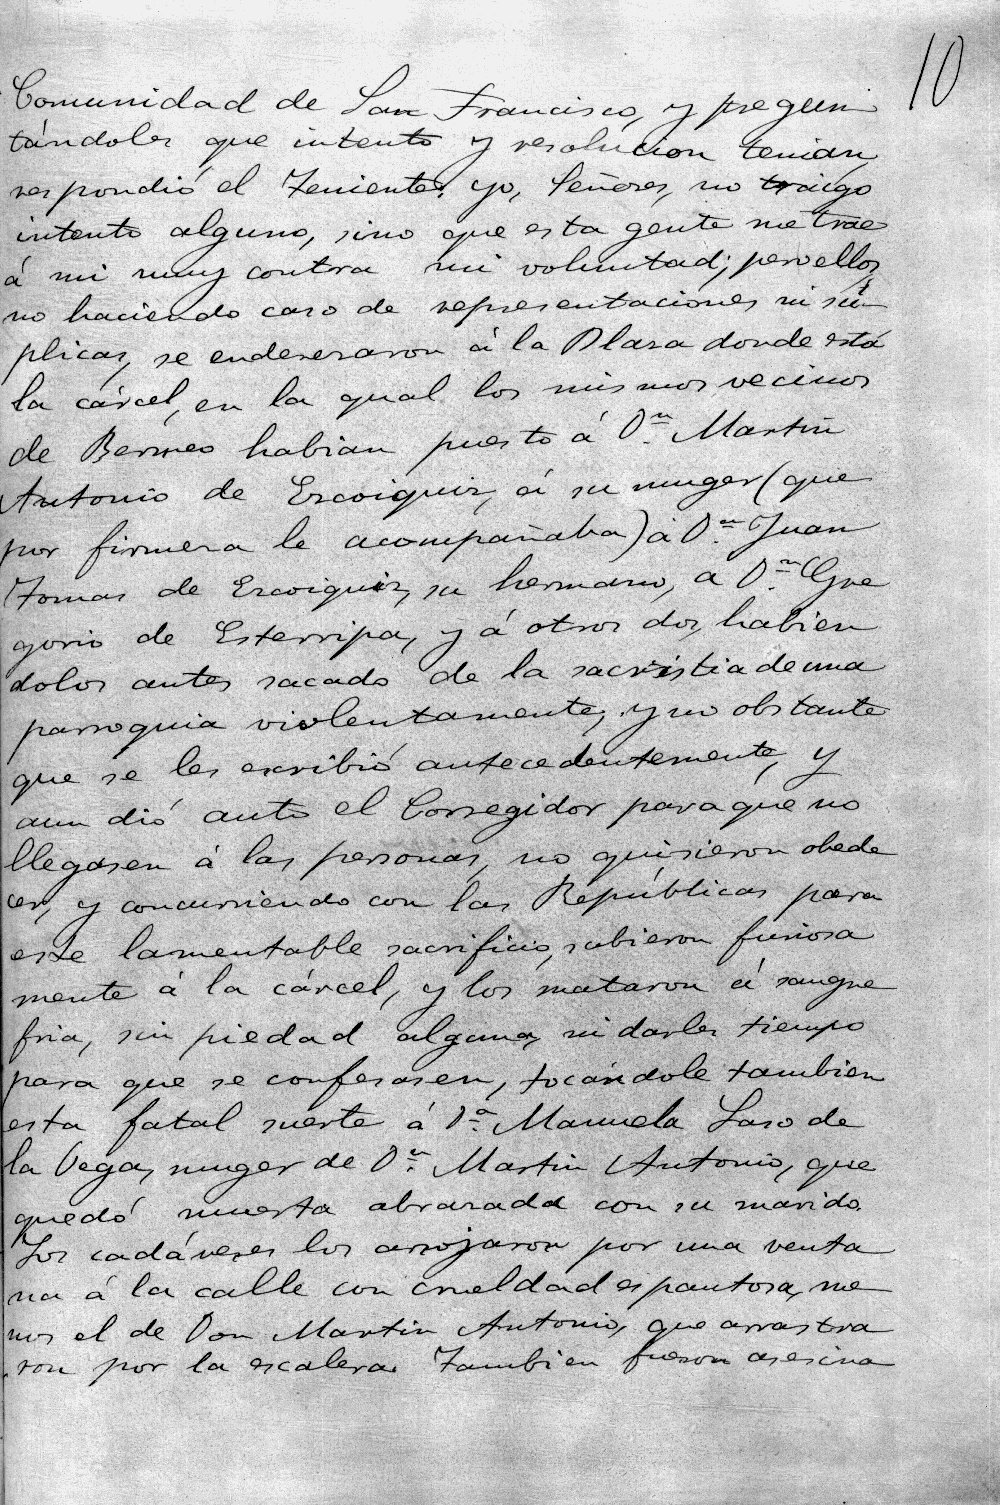 10
Comunidad de San Francisco, y pregun
tándoles que intento y resolucion tenian,
respondió el Teniente: yo, Señores, no traigo
intento alguno, sino que esta gente me trae
á mi muy contra mi voluntad; pero ellos,
no haciendo caso de representaciones ni sú
plicas, se enderezaron á la Plaza donde está
la cárcel, en la qual los mismos vecinos
de Bermeo habian puesto á Dn. Martin
Antonio de Escoiquiz, á su muger (que
por firmeza le acompañaba) á Dn. Juan
Tomas de Escoiquiz, su hermano, a Dn. Gre
gorio de Esterripa, y á otros dos, habien
dolos antes sacado de la sacristia de una
parroquia violentamente, y no obstante
que se les escribió antecedentemente, y
aun dió auto el Corregidor para que no
llegasen á las personas, no quisieron obede
cer, y concurriendo con las Repúblicas para
este lamentable sacrificio, subieron furiosa
mente á la cárcel, y los mataron á sangre
fria, sin piedad alguna, ni darles tiempo
para que se confesasen, tocándole tambien
esta fatal suerte á Da. Manuela Laso de
la Vega, muger de Dn. Martin Antonio, que
quedó muerta abrazada con su marido.
Los cadáveres los arrojaron por una venta
na á la calle con crueldad espantosa, me
nos el de Don Martin Antonio, que arrastra
ron por la escalera. Tambien fueron asesina